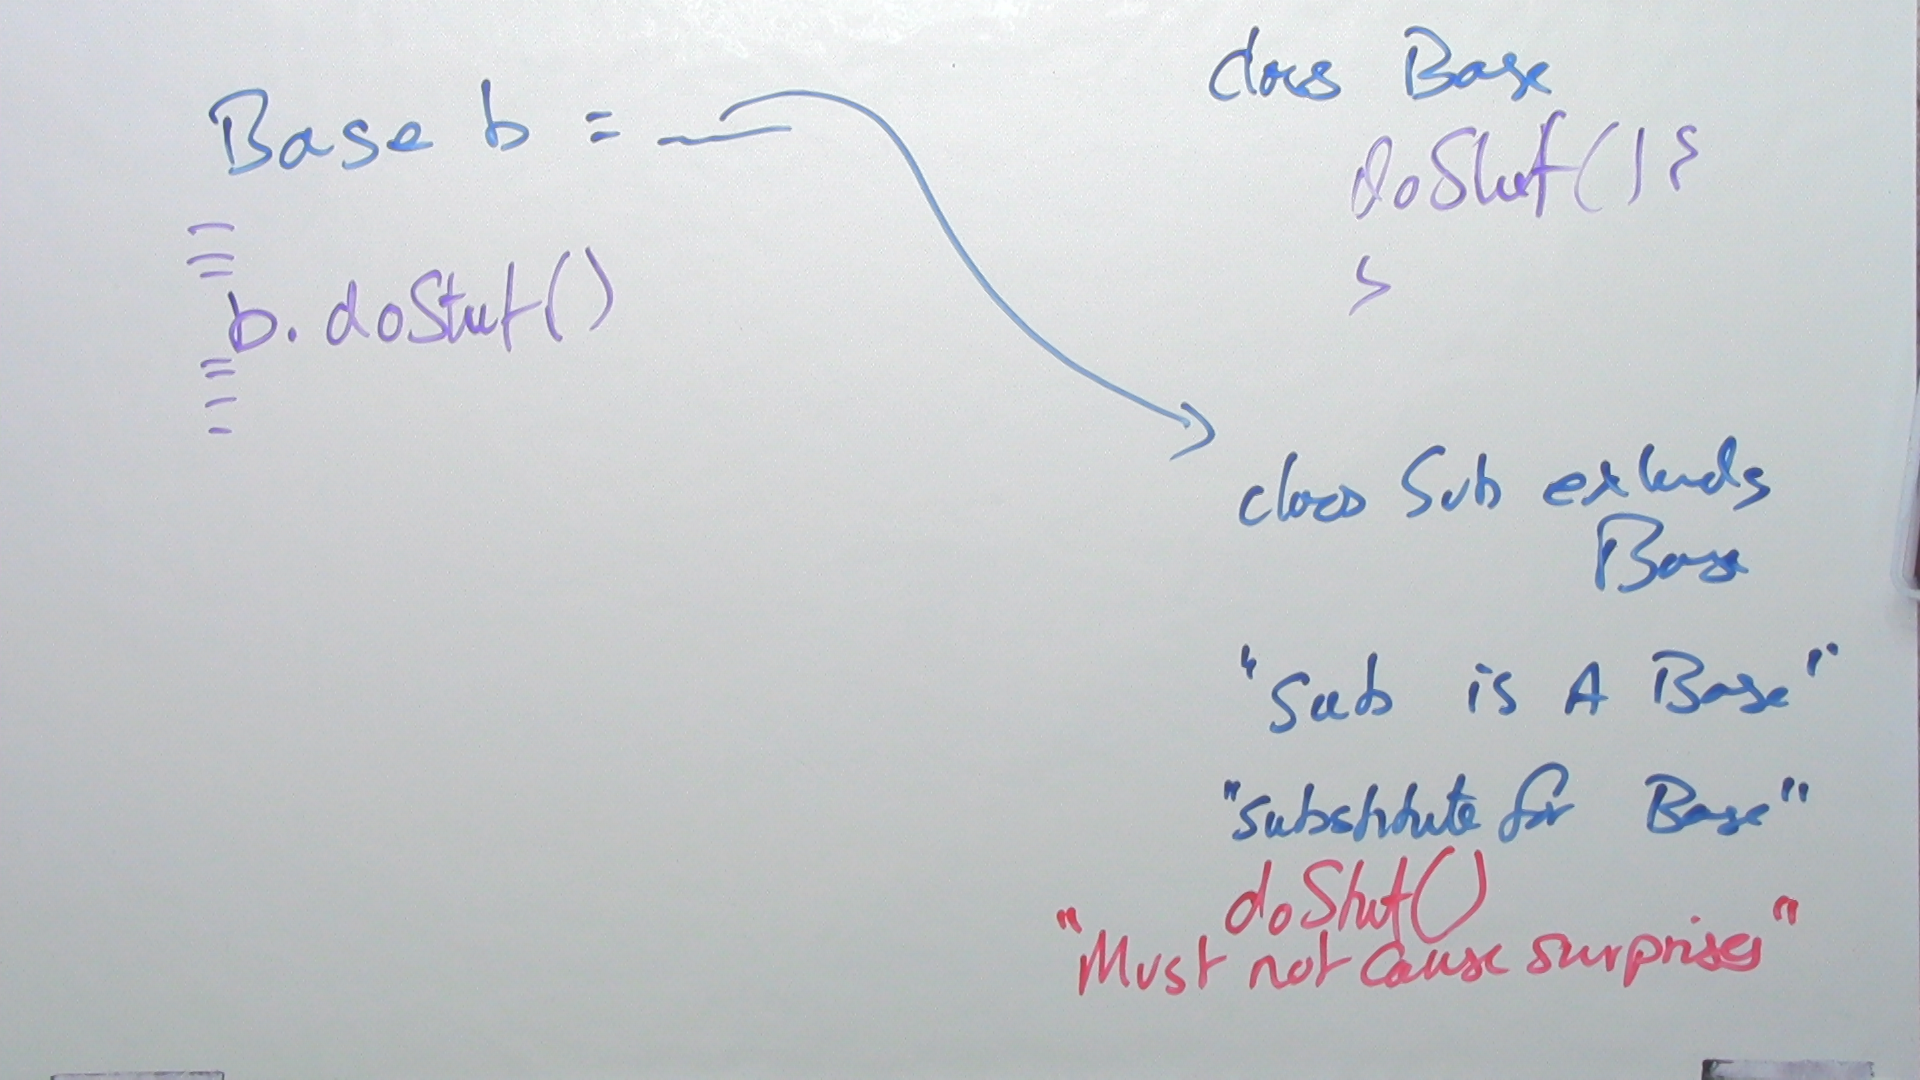 Base b = __
b. doStuf()
class Base
doStuf() {
}
class Sub extends
Base
"Sub is A Base"
"substitute for Base"
doStuf()
"Must not cause surprises"